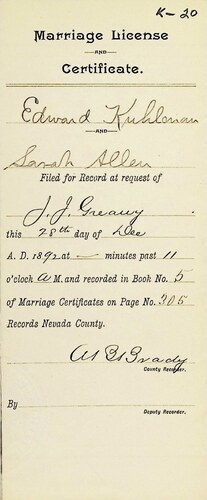 K-20
Marriage License
AND
Certificate.
Edward Kuhlenan
AND
Sarah Allen
Filed for Record at request of
J. J. Greany
this 28th day of Dec
A. D. 1892 at — minutes past 11
o'clock A M. and recorded in Book No. 5
of Marriage Certificates on Page No. 305
Records Nevada County.
Brady
County Recorder.
By
Deputy Recorder.